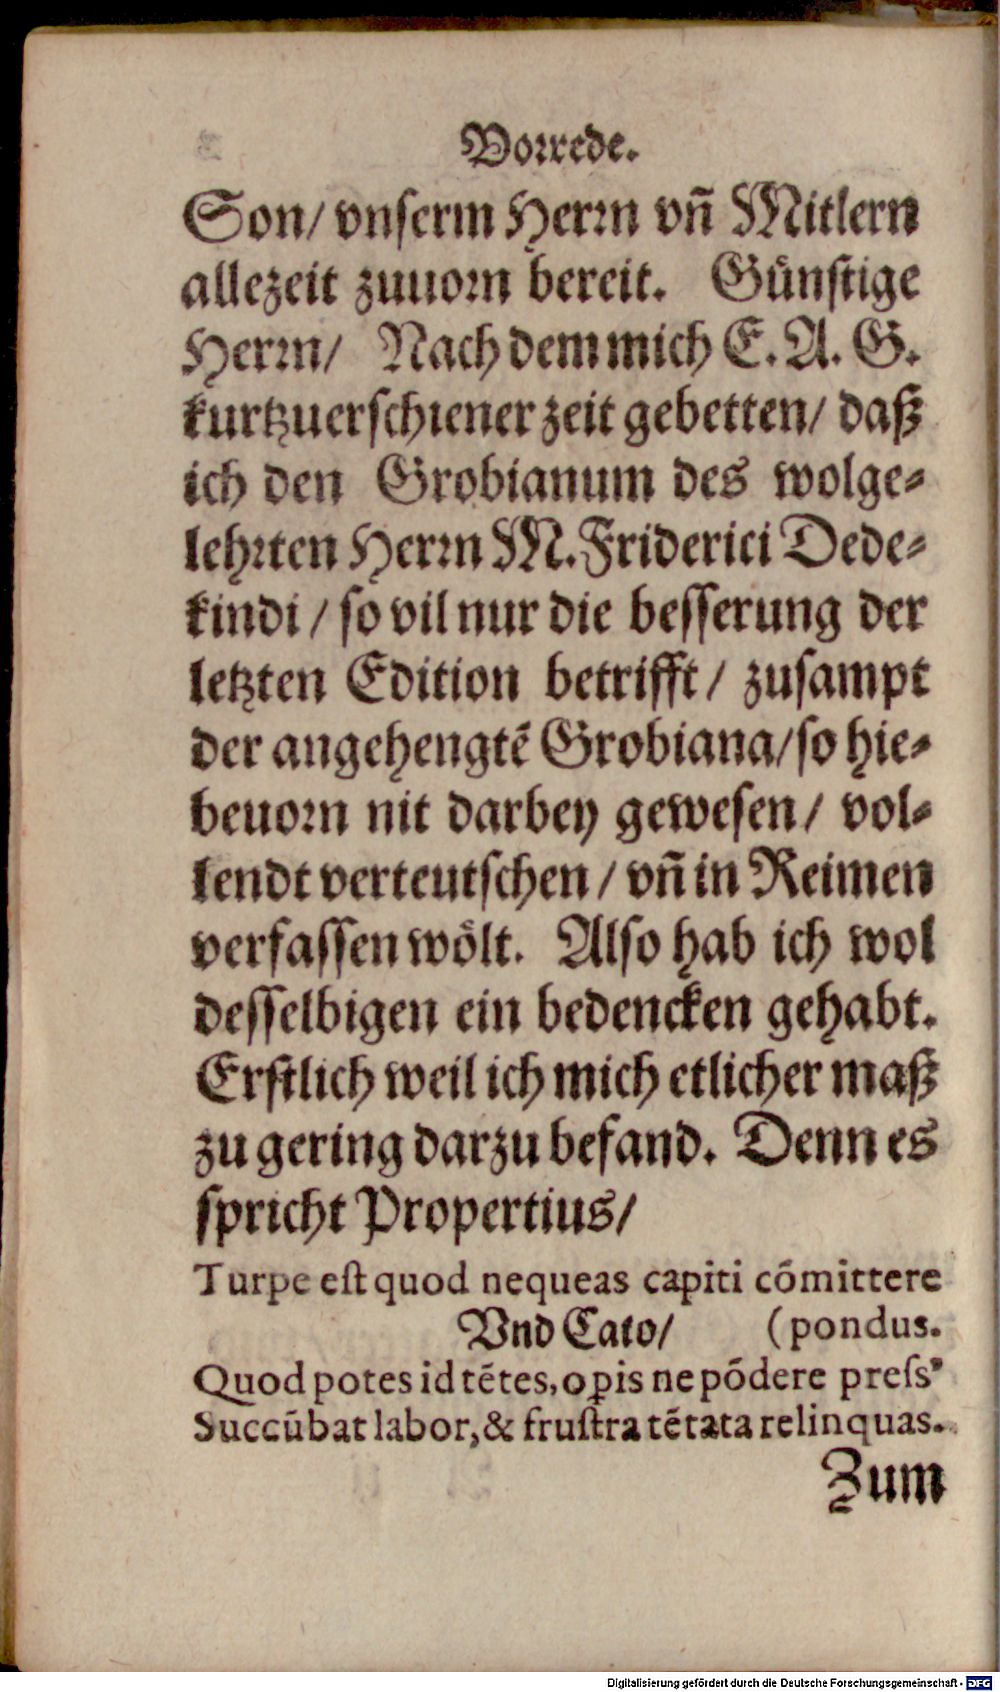 Vorrede.
Son/ vnserm Herrn vñ Mitlern
allezeit zuuorn bereit. Günstige
Herrn/ Nach dem mich E. A. G.
kurtzuerschiener zeit gebetten/ daß
ich den Grobianum des wolge-
lehrten Herrn M. Friderici Dede-
kindi / so vil nur die besserung der
letzten Edition betrifft / zusampt
der angehengtẽ Grobiana/ so hie-
beuorn nit darbey gewesen / vol-
lendt verteutschen / vñ in Reimen
verfassen wölt. Also hab ich wol
desselbigen ein bedencken gehabt.
Erstlich weil ich mich etlicher maß
zu gering darzu befand. Denn es
spricht Propertius/
Turpe est quod nequeas capiti cõmittere
Vnd Cato/ (pondus.
Quod potes id tẽtes, oꝑis ne põdere pressꝰ
Succũbat labor, & frustra tẽtata relinquas.
Zum
Digitalisierung gefördert durch die Deutsche Forschungsgemeinschaft - DFG